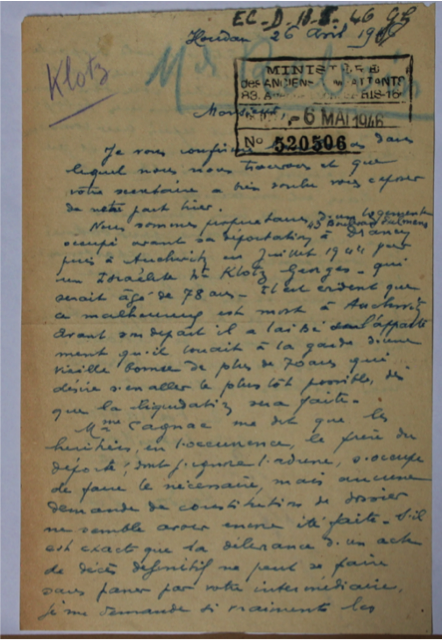 EC-D-18-5-46
Houdan 26 Avril 19
Klotz
MINISTERE
DES ANCIENS COMBATTANTS
83. A
6 MAI 1946
No 520506
Monsieur,
Je vous confirme dans
lequel nous nous trouvons et que
votre a très vous exposer
de notre part hier.
Nous sommes propriétaires d'un logement
45 Boulevard
occupé avant sa déportation à Drancy
puis à Auchwitz en Juillet 1944 par
un Israëlite Mr Klotz Georges - qui
serait âgé de 78 ans - Il est évident que
ce malheureux est mort à Auchwitz
Avant son départ il a laissé l'apparte
ment qu'il louait à la garde d'une
vieille bonne de plus de 70 ans qui
désire s'en aller le plus tôt possible, dès
que la liquidation sera faite -
Mme Cagnac me dit que les
héritiers, en l'occurence, le frère du
déporté, dont j'ignore l'adresse, s'occupe
de faire le nécessaire, mais aucune
demande de constitution de dossier
ne semble avoir encore été faite - S'il
est exact que la délivrance d'un acte
de décès définitif ne peut se faire
sans passer par votre intermédiaire,
je me demande si vraiment les